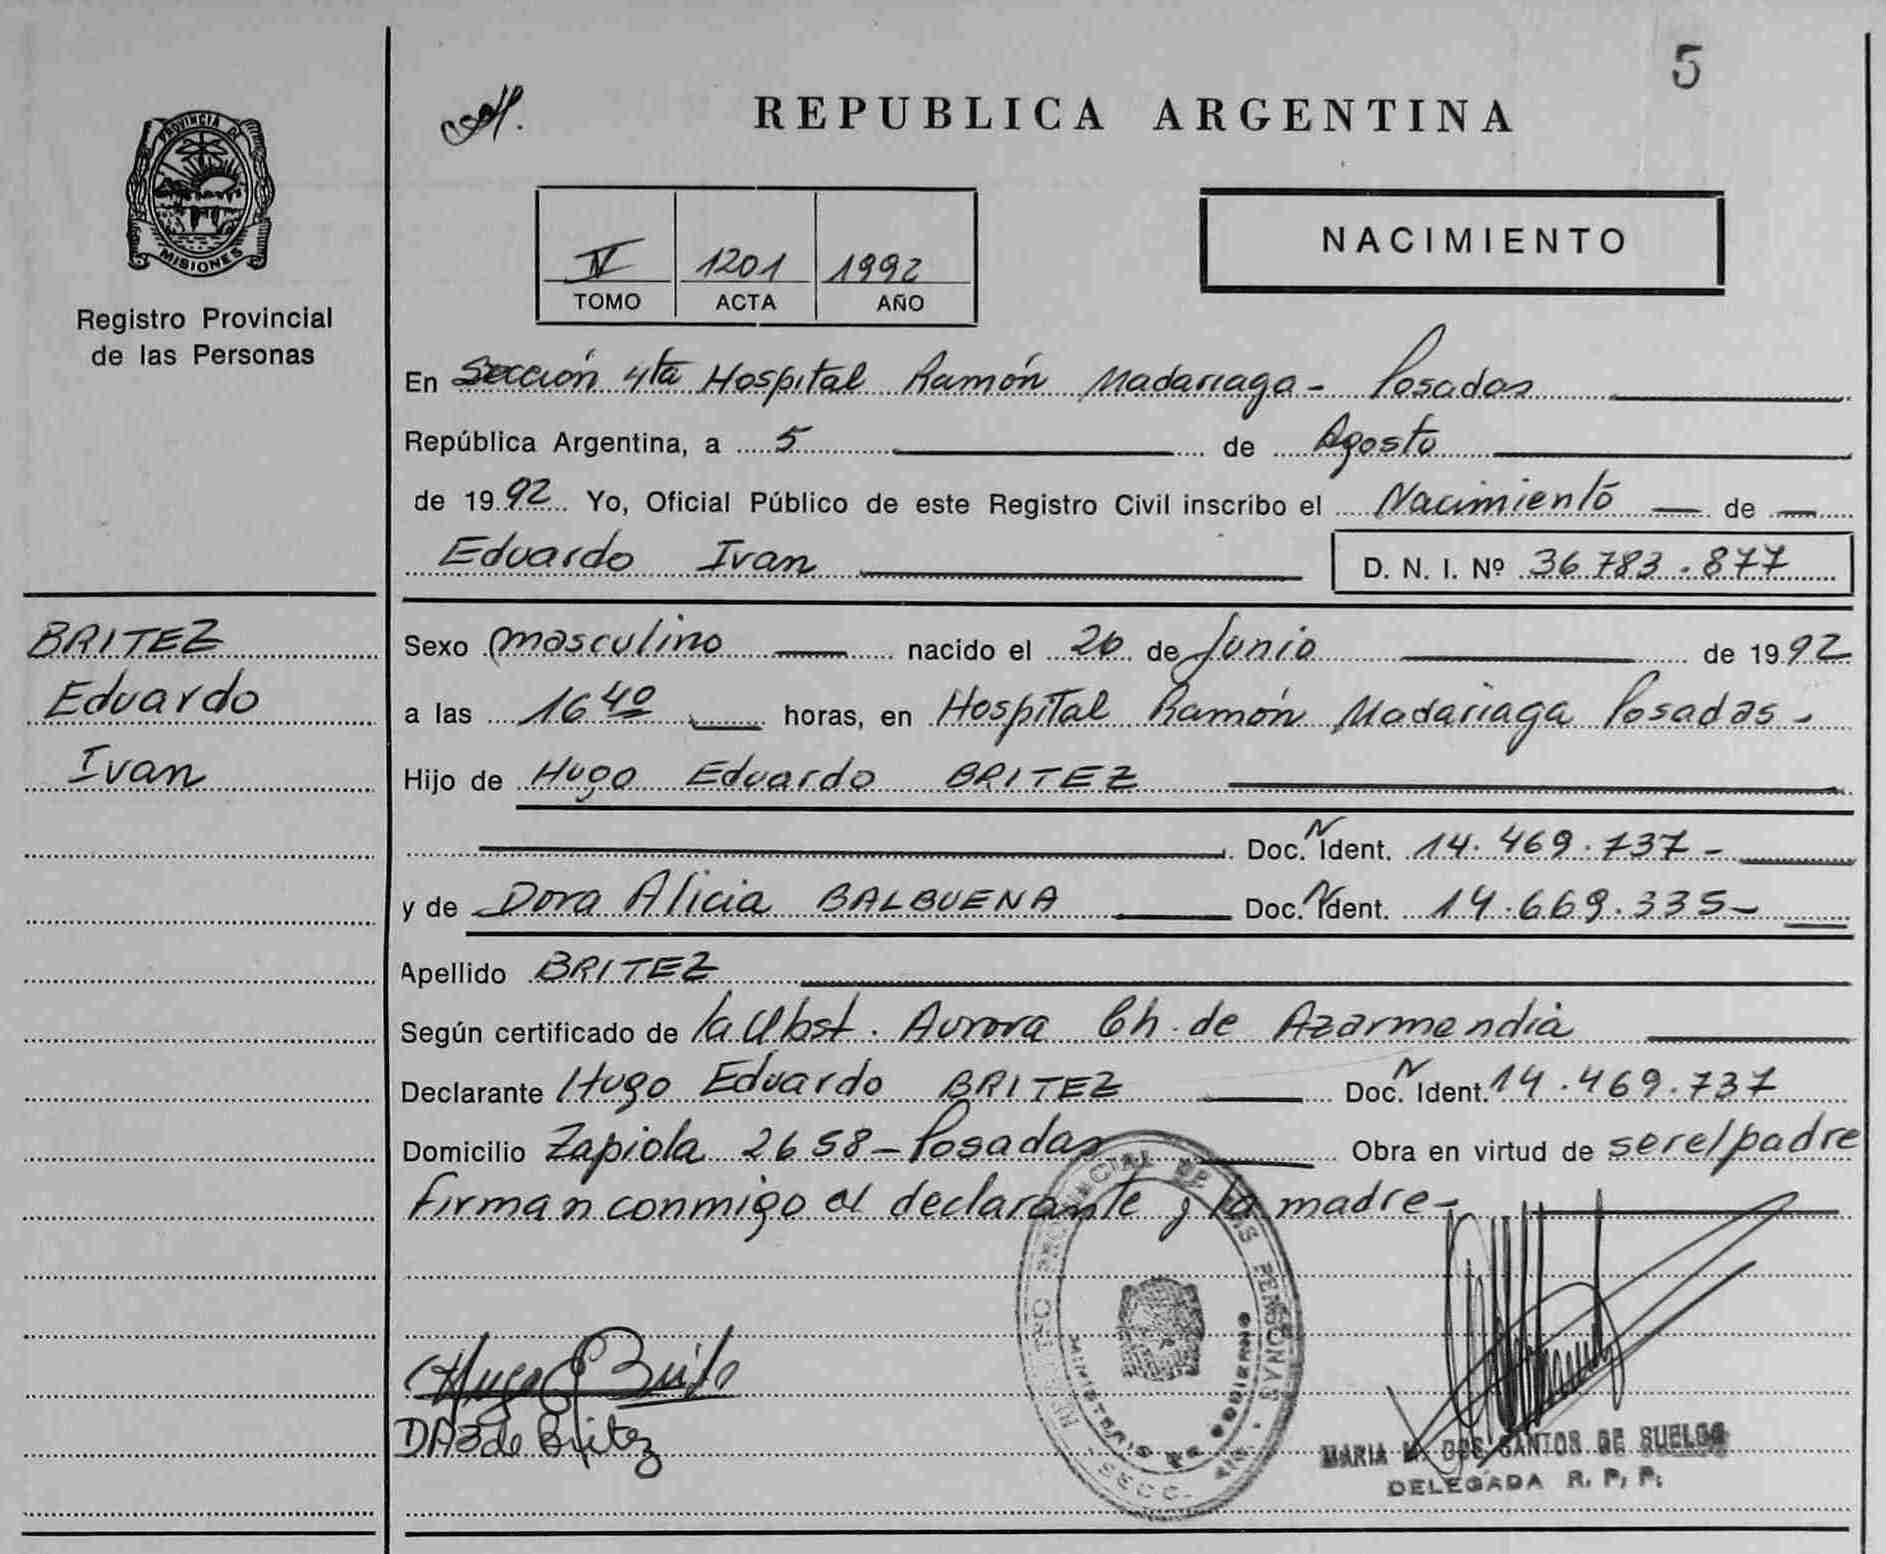 5
REPUBLICA ARGENTINA
PROVINCIA DE
MISIONES
Registro Provincial
de las Personas
IV 1201 1992
TOMO ACTA AÑO
NACIMIENTO
En Sección 4ta Hospital Ramón Madariaga - Posadas
República Argentina, a 5 de Agosto
de 1992 Yo, Oficial Público de este Registro Civil inscribo el Nacimiento de
Eduardo Ivan D. N. I. Nº 36.783.877
BRITEZ
Eduardo
Ivan
Sexo masculino nacido el 26 de Junio de 1992
a las 16 40 horas, en Hospital Ramón Madariaga Posadas -
Hijo de Hugo Eduardo BRITEZ
Doc. N Ident. 14.469.737 -
y de Dora Alicia BALBUENA Doc. N Ident. 14.669.335 -
Apellido BRITEZ
Según certificado de la Obst. Aurora Ch. de Azarmendia
Declarante Hugo Eduardo BRITEZ Doc. N Ident. 14.469.737
Domicilio Zapiola 2658 - Posadas Obra en virtud de ser el padre
firman conmigo el declarante y la madre -
REGISTRO PROVINCIAL DE LAS PERSONAS
MINISTERIO DE GOBIERNO
SECC.
Hugo E Britez
DAB de Britez
MARIA M. DOS SANTOS DE SUELOS
DELEGADA R. P. P.